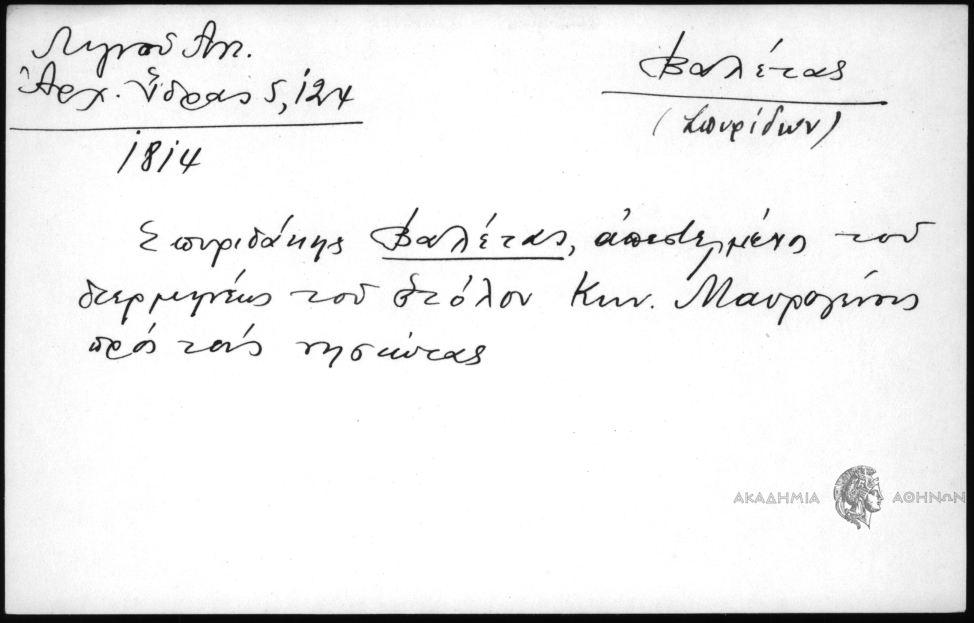 Λιγνοῦ Ἀντ.
Ἀρχ. Ὕδρας 5, 124
1814
Βαλέτας
(Σπυρίδων)
Σπυριδάκης Βαλέτας, ἀπεσταλμένος τοῦ
διερμηνέως τοῦ στόλου Κων. Μαυρογένους
πρός τούς νησιώτας
ΑΚΑΔΗΜΙΑ ΑΘΗΝΩΝ